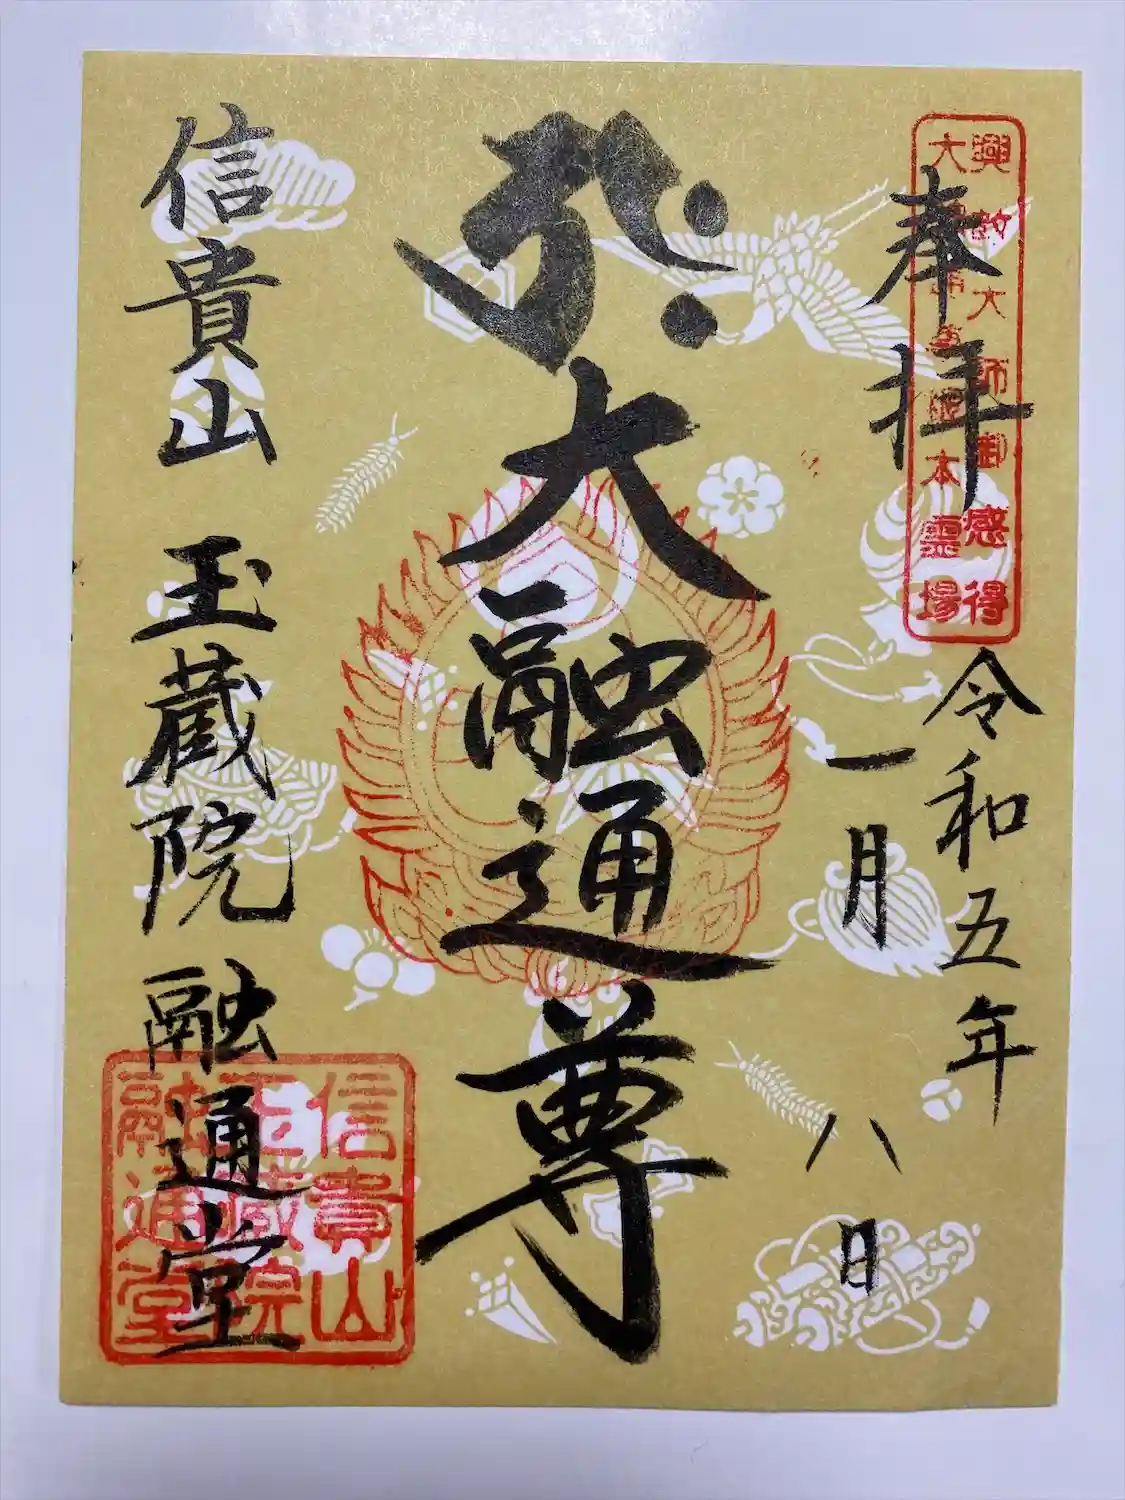 奉拝
興教大師御感得
大
本霊場
令和五年
一月八日
大融通尊
信貴山 玉蔵院 融通堂
信貴山
玉蔵院
融通堂